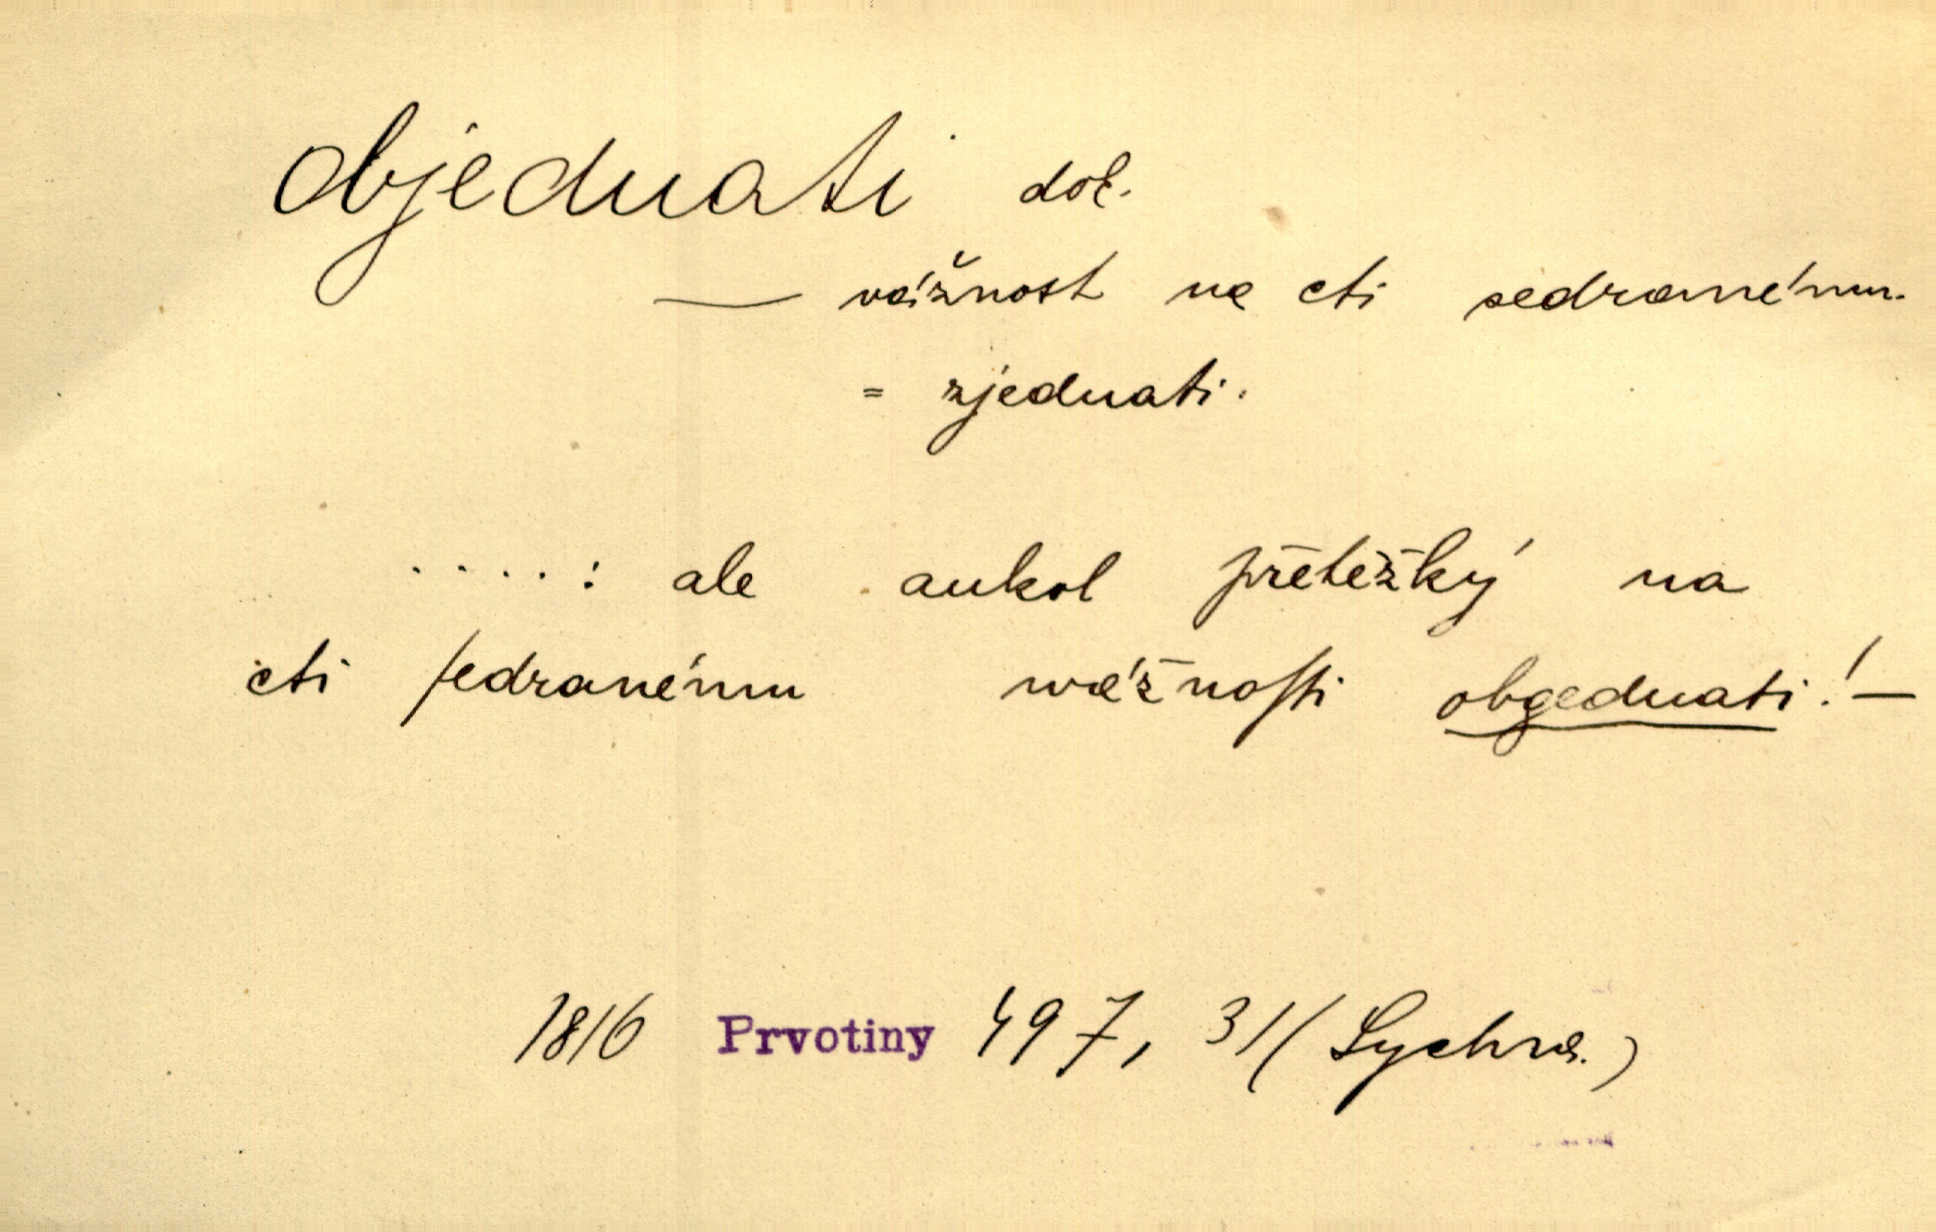 objednati dok.
— vážnost na cti sedranému.
= zjednati.
. . . . : ale aukol přetěžký na
cti ſedranému wážnoſti obgednati! —
1816 Prvotiny 497, 31 (Sychra.)